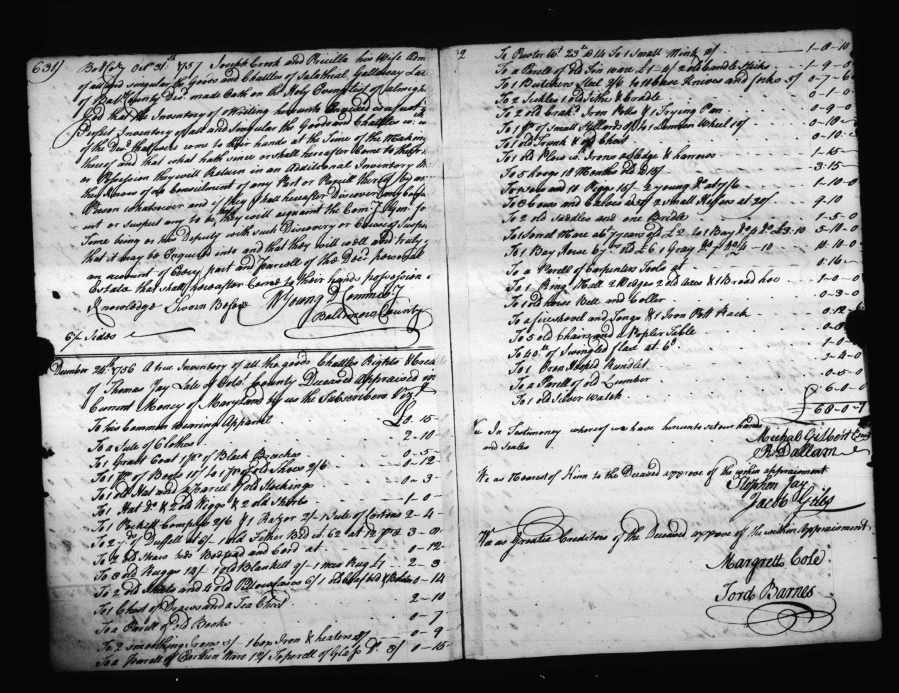 631
Balto Cty Octr 31st 1757 Joseph Crook and Priscilla his Wife Adm
of all and singular the goods and Chattles of Salathial Galloway Late
of Balt County Decd made Oath on the Holy Evangelist of Almigh
God that the Inventory of Writing hereunto Annexed is a just &
perfect Inventory of all and Singular the Goods and Chattles
of the Decd that hath come to their hands at the Time of the Making
thereof and that what hath since or shall hereafter Come to their
Possession they will Return in an Additional Inventory
they knows of no Concealment of any Part or Parcell thereof by an
Person whatsoever and if they shall hereafter Discover any Conceal
ment or suspect any to be they will acquaint the Comy Genl for
Time being or his Deputy with such Discovery or Cause of Suspic
that it may be Enquired into and that they will well and truly
an account of Every part and Parcell of the Decd personal
Estate that shall hereafter Come to their hands possession
Knowledge Sworn Before
W Young D Commisy
Baltimore County
6 Sides
December 24th 1756 A true Inventory of all the goods Chattles Rights &
of Thomas Jay Late of Balto County Deceased Appraised in
Current Money of Maryland by us the Subscribers Viz
To his Common wearing Apparel £0-15
To a Sute of Cloths 2-10
To 1 Great Coat 1 pr of Black Breaches 0-5
To 1 pr of Boots 1 pr old Shoes 2/6 0-12
To 1 old Hat and a Parcel of old Stockings 0-3
To 1 Hat Do & 2 old Wiggs & 2 old Shirts 1-0
To 1 Pockett Compass 2/6 & 1 Razor 2/ 1 Sute of Cortons 2-4
To 2 yds of Duffell at 6/ 1 old Father Bed wt 62 at 12 pd 3-0
To 2 old Straw Beds Bedstead and Cord at 0-12
To 8 old Ruggs 14/ 1 old Blanket 2/ 1 new Rug £1 2-3
To 2 old Sheets and 4 old Pillowcases 6/ 0-14
To 1 Chest of Drawers and a Tea Chest 2-10
To a Parcell of old Books 0-7
To 2 smoothing Irons 3/ 1 box Iron & heaters 0-9
To a Parcell of Earthen Ware 12/ To parcell of Glass Do 3/ 0-15
2
To Pewter wt 23 To 1 Small 1-8-10
To a Parcell of old Tin ware £1 4 old Candle Sticks 1-9-0
To 1 Butchers Steel 2/6 to 11 Case Knives and forks 5/ 0-7-6
To 2 Sickles 1 old Sithe & Cradle 0-1-0
To 2 old Crakd Iron Potts & 1 Frying Pan 0-9-0
To 1 pr of Small Stillards 1 Linnen Wheel 0-10
To 1 old Trunk & old Chest 0-10
To 1 old Plow wt Irons a Wedge & harrow 1-15
To 5 hoggs 18 Months old 3-15
To sow and 10 Piggs 15/ 2 young Do at 7/6 1-10-0
To 3 Cows and Calves 2 Small Heifers at 20/ 9-10
To 2 old Saddles and one Bridle 1-5-0
To 1 Sorrel Mare 7 years old £2 to 1 Bay Do £3-10 5-10-0
To 1 Bay Horse yrs old £6 1 Gray Do 4-10 10-10-0
To a Parcell of Carpenters Tools 0-16
To 1 Ring Mall 2 Wedges 2 old Axes & 1 Broad hoe 1-0-0
To 1 old horse Bell and Coller 0-3-0
To a fire shovel and Tongs & 1 Iron Pott Rack 0-12
To 5 old Chairs and a Popler Table 0-8
To 40 lb of Swingled flax at 6d 1-0
To 1 Iron Hooped Rundlet 0-4-0
To a Parcell of old Lumber 0-5-0
To 1 old Silver Watch 6-0-0
£68-0-7
In Testimoney whereof we have hereunto set our hands
and Seales
Michal Gilbert
R Dallam
We as Nearest of Kinn to the Deceased approve of the within appraisment
Stephen Jay
Jacob Giles
We as Greatest Creditors of the Deceased approve of the within Appraisment
Margrett Cole
Ford Barnes